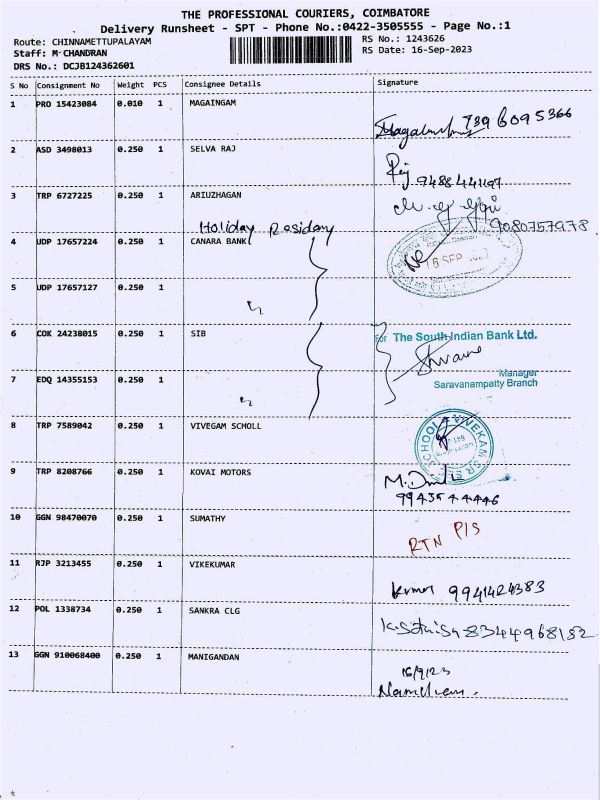 THE PROFESSIONAL COURIERS, COIMBATORE
Delivery Runsheet - SPT - Phone No.:0422-3505555 - Page No.:1
Route: CHINNAMETTUPALAYAM RS No.: 1243626
Staff: M CHANDRAN RS Date: 16-Sep-2023
DRS No.: DCJB124362601
S No Consignment No Weight PCS Consignee Details Signature
1 PRO 15423084 0.010 1 MAGAINGAM
739 6095366
2 ASD 3498013 0.250 1 SELVA RAJ
9488441197
3 TRP 6727225 0.250 1 ARIUZHAGAN
Holiday 9080757978
4 UDP 17657224 0.250 1 CANARA BANK
16 SEP
5 UDP 17657127 0.250 1
6 COK 24238015 0.250 1 SIB For The South Indian Bank Ltd.
Manager
7 EDQ 14355153 0.250 1 Saravanampatty Branch
8 TRP 7589042 0.250 1 VIVEGAM SCHOLL
9 TRP 8208766 0.250 1 KOVAI MOTORS
10 GGN 98470070 0.250 1 SUMATHY
RTN P/S
11 RJP 3213455 0.250 1 VIKEKUMAR
Kumar 9941424383
12 POL 1338734 0.250 1 SANKRA CLG
8344968182
13 GGN 910068400 0.250 1 MANIGANDAN
16/9/23